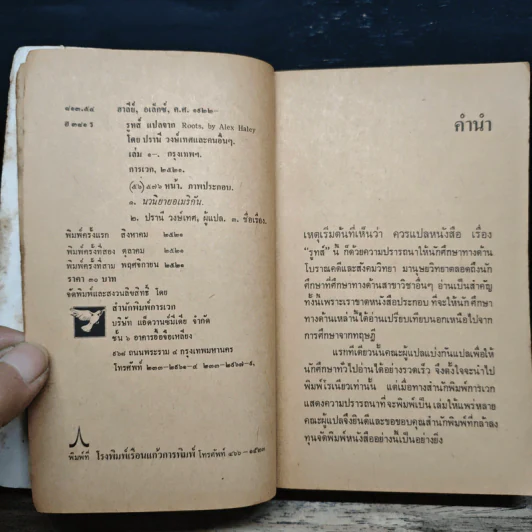 ๘๑๓.๕๔ ฮาลีย์, อเล็กซ์, ค.ศ. ๑๙๒๑–
รูทส์ แปลจาก Roots, by Alex Haley
โดย ปรานี วงษ์เทศและคนอื่นๆ.
เล่ม ๑–. กรุงเทพฯ.
การเวก, ๒๕๒๑.
(๕๖)๕๗๖ หน้า. ภาพประกอบ.
๑. นวนิยายอเมริกัน.
๒. ปรานี วงษ์เทศ, ผู้แปล. ๓. ชื่อเรื่อง.
พิมพ์ครั้งแรก สิงหาคม ๒๕๒๑
พิมพ์ครั้งที่สอง ตุลาคม ๒๕๒๑
พิมพ์ครั้งที่สาม พฤศจิกายน ๒๕๒๑
ราคา ๓๐ บาท
จัดพิมพ์และสงวนลิขสิทธิ์ โดย
สำนักพิมพ์การเวก
บริษัท แอ๊ดวานซ์มีเดีย จำกัด
ชั้น ๖ อาคารอื้อจือเหลียง
๙๖๘ ถนนพระราม ๔ กรุงเทพมหานคร
โทรศัพท์
พิมพ์ที่ โรงพิมพ์เรือนแก้วการพิมพ์ โทรศัพท์
คำนำ
เหตุเริ่มต้นที่เห็นว่า ควรแปลหนังสือ เรื่อง
"รูทส์" นี้ ก็ด้วยความปรารถนาให้นักศึกษาทางด้าน
โบราณคดีและสังคมวิทยา มานุษยวิทยาตลอดถึงนัก
ศึกษาทางด้านสาขาวิชาอื่นๆ อ่านเป็นสำคัญ
ทั้งนี้เพราะเราขาดหนังสือประกอบ ที่จะให้นักศึกษา
ทางด้านเหล่านี้ได้อ่านเปรียบเทียบนอกเหนือไปจาก
การศึกษาจากทฤษฎี
แรกทีเดียวนั้นคณะผู้แปลแบ่งกันแปลเพื่อให้
นักศึกษาทั่วไปอ่านได้อย่างรวดเร็ว จึงตั้งใจจะนำไป
พิมพ์โรเนียวเท่านั้น แต่เมื่อทางสำนักพิมพ์การเวก
แสดงความปรารถนาที่จะพิมพ์เป็นเล่มให้แพร่หลาย
คณะผู้แปลจึงยินดีและขอขอบคุณสำนักพิมพ์ที่กล้าลง
ทุนจัดพิมพ์หนังสืออย่างนี้เป็นอย่างยิ่ง